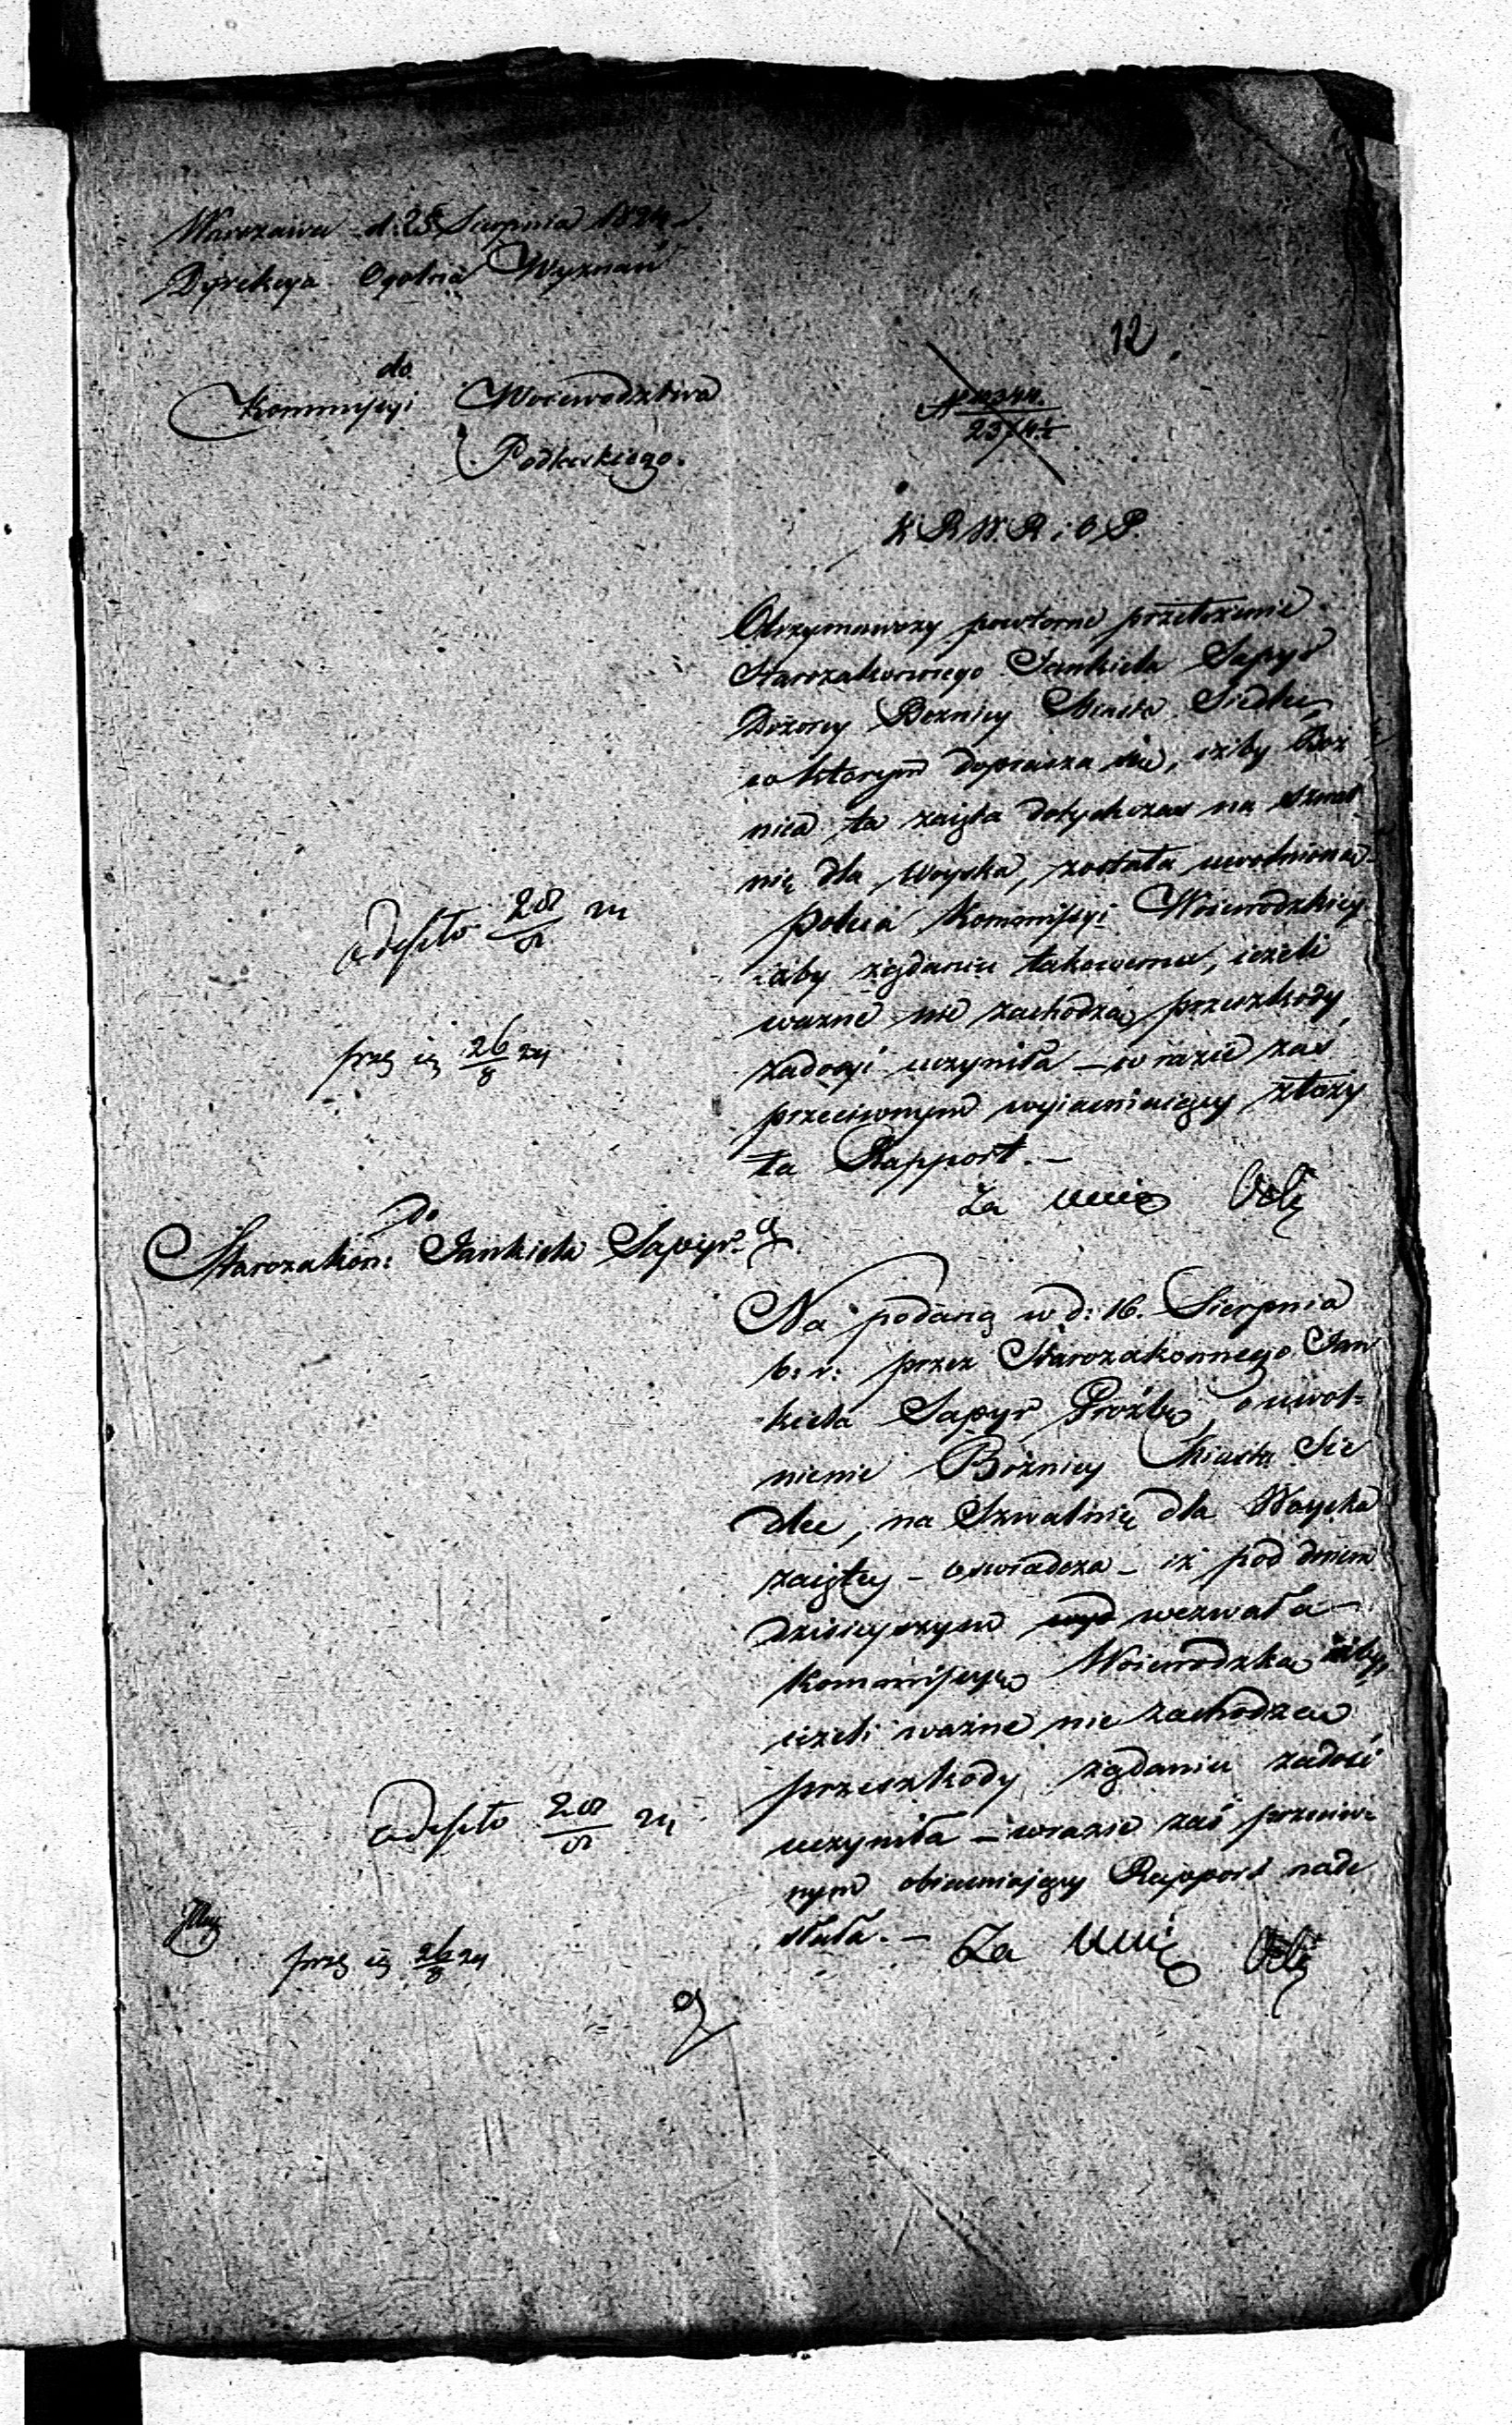 Warszawa d. 25 Sierpnia 1824.
Dyrekcya Ogolna Wyznań
do
Kommissyi Woiewodztwa
Podlaskiego.
12
K R W. R i O P.
Otrzymawszy powtorne przełożenie
Starozakonnego Jankiela Sapyr
Dozorcy Boznicy Miasta Siedlec
w ktorym doprasza się, iżby Boz
nica ta zaięta dotychczas na szwal
nię dla Woyska, została uwolniona
poleca Kommissyi Woiewodzkiey
aby żądaniu takowemu, ieżeli
ważne nie zachodzą przeszkody,
zadosyć uczyniła – w razie zaś
przeciwnym wyiaśniaiący złoży
ła Rapport. –
Za
odeszło 28/8 24
prz 26/8 24
Do
Starozakon: Jankiela Sapyr
Na podaną w d: 16. Sierpnia
b: r: przez Starozakonnego Jan
kiela Sapyr Prożbę, o uwol=
nienie Bożnicy Miasta Sie
dlec, na Szwalnię dla Woyska
zaiętey – oswiadcza – iż pod dniem
dzisieyszym wezwała
Kommissyą Woiewodzką iżby,
ieżeli ważne nie zachodzą
przeszkody żądaniu zadość
uczyniła – w razie zaś przeciw=
nym obiaśniaiący Rapport nade
słała. –
Za
odeszło 28/8 24
prz 26/8 24